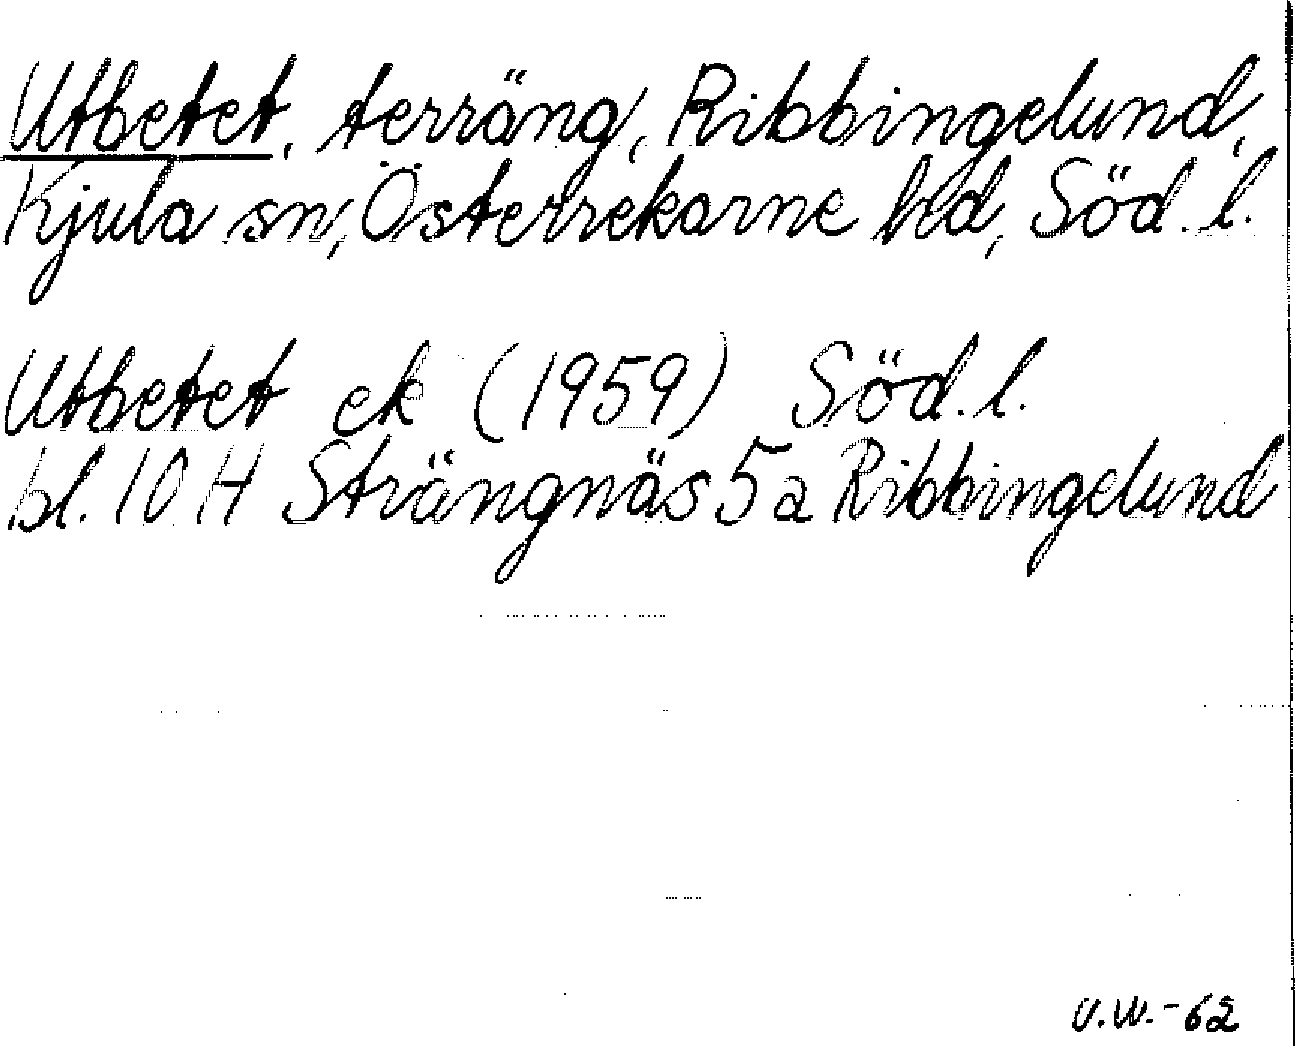 Utbetet, terräng, Ribbingelund,
Kjula sn, Österrekarne hd, Söd. l.
Utbetet ek (1959) Söd. l.
bl. 10 H Strängnäs 5 a Ribbingelund
V.W.-62